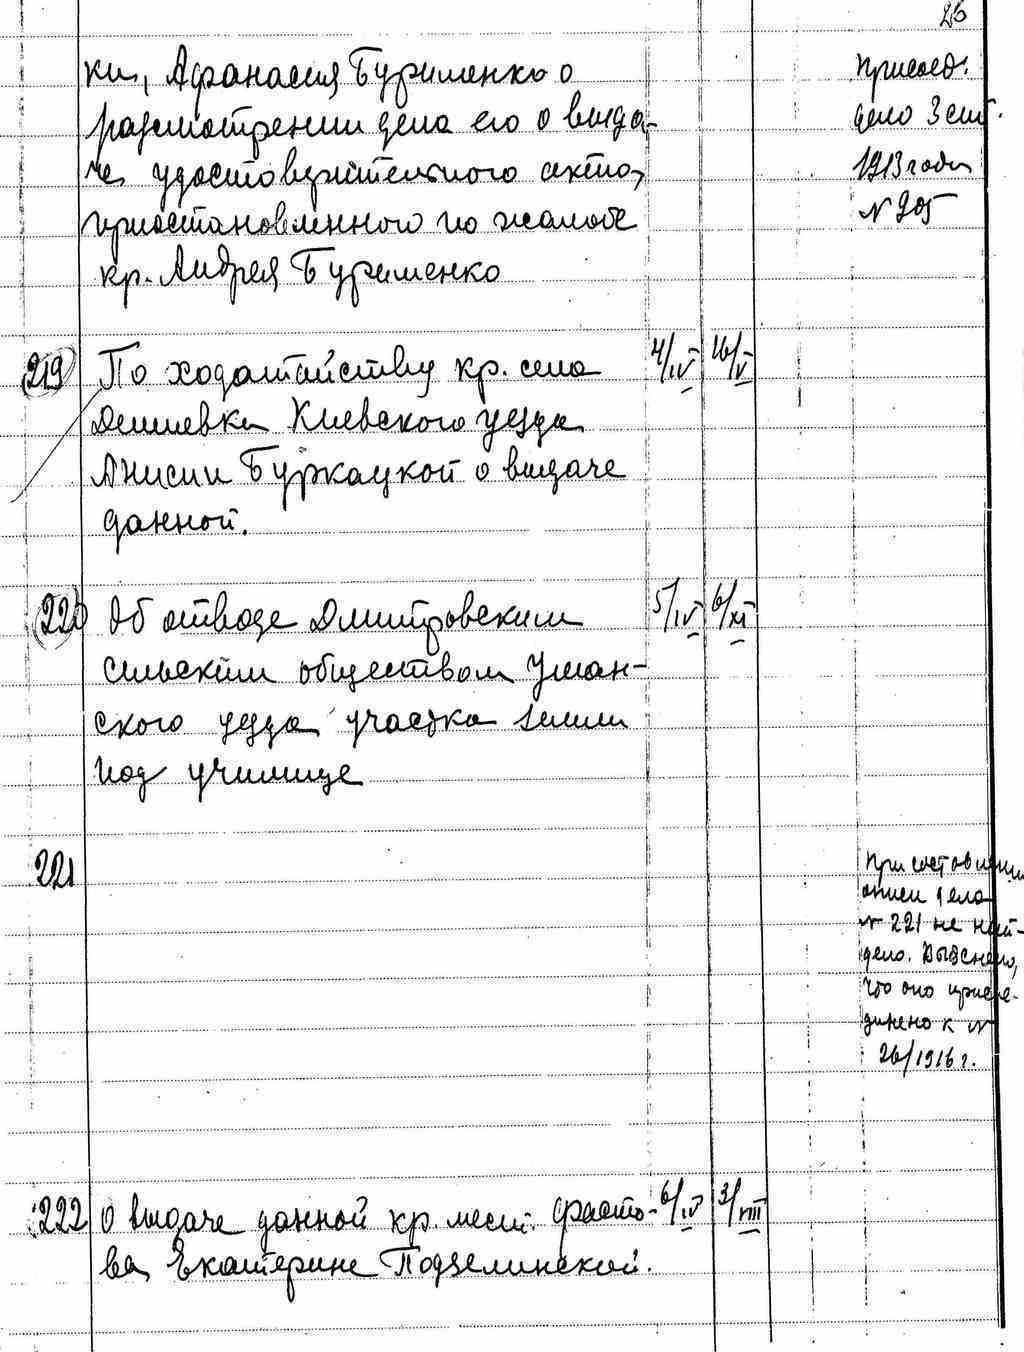 26
ки, Афанасия Бурименко о
рассмотрении дела его о выда-
че удостоверительного акта,
приостановленного по жалобе
кр. Андрея Буrименко
присоед.
дело 3 ст.
1913 года
№ 205
219 По ходатайству кр. села 4/IV 16/V
Дешевки Киевского уезда
Анисии Буркацкой о выдаче
данной.
220 Об отводе Дмитровским 5/IV 6/XI
сельским обществом Уман-
ского уезда участка земли
под училище
221
При составлении
описи дела
№ 221 не най-
дено. Выяснено,
что оно присое-
динено к №
26/1916 г.
222 О выдаче данной кр. мест. Фасто- 6/IV 3/VIII
ва Екатерине Подзелинской.